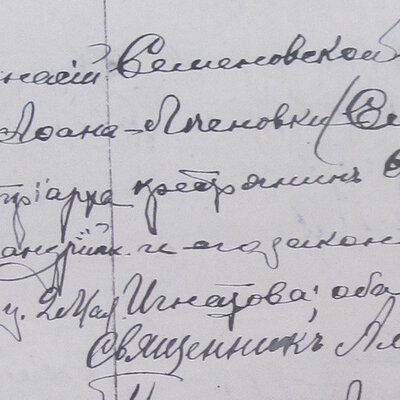 насій Семеновской
Іоана-Леновки (Се
тріарха крестьянинъ
андрійк. и его закон
у. 2 Мая Игнатова; оба
Священникъ Ал